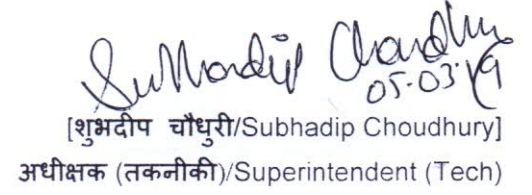 Subhadip Choudhury
05-03-19
[शुभदीप चौधुरी/Subhadip Choudhury]
अधीक्षक (तकनीकी)/Superintendent (Tech)